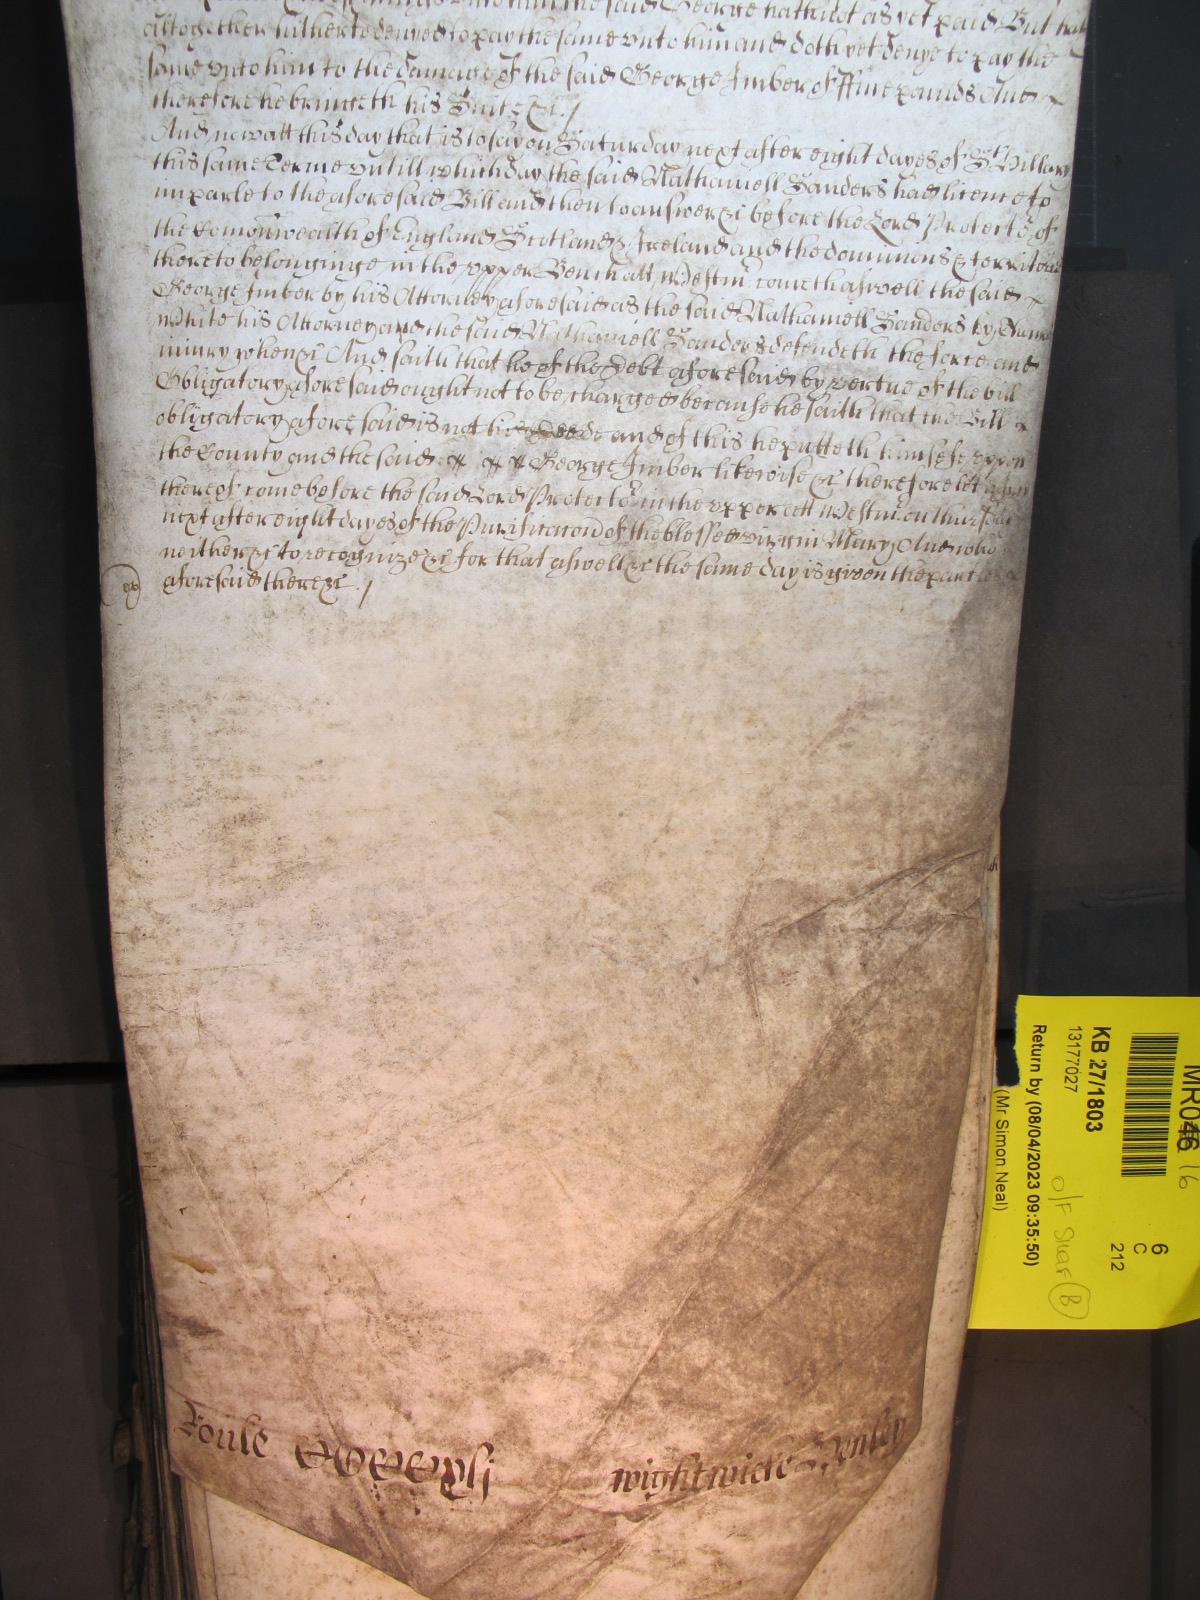 unto him the said George hath not as yet paid But hath
altogether hitherto denyed to pay the same vnto him and doth yet denye to pay the
same vnto him to the damage of the said George Imber of ffive pounds And
therefore he bringeth his Suite &c. /
And now att this day that is to say on Saturday next after eight dayes of St Hillary
this same Terme vntill which day the said Nathaniell Sanders had licence to
imparle to the aforesaid Bill and then to answer &c before the Lord Protector of
the Comonwealth of England Scotland & Ireland and the dominions & territories
thereto belonginge in the vpper Bench att Westmr cometh aswell the said
George Imber by his Attorney aforesaid as the said Nathaniell Sanders by
White his Attorney and the said Nathaniell Sanders defendeth the force and
iniury when &c And saith that he of the debt aforesaid by vertue of the bill
Obligatory aforesaid ought not to be charged because he saith that the Bill
obligatory aforesaid is not his deede and of this he putteth himselfe vppon
the County and the said George Imber likewise &c therefore let a Jury
thereof come before the said Lord Protector in the vpper att Westmr on thursday
next after eight dayes of the Purificacion of the blessed virgin Mary And who
neither &c to recognize &c for that aswell &c the same day is given the parties
aforesaid there &c. /
MR046
16
6
C
212
KB 27/1803
13177027
O/F Shar B
Return by (08/04/2023 09:35:50)
(Mr Simon Neal)
wightwicke Henley